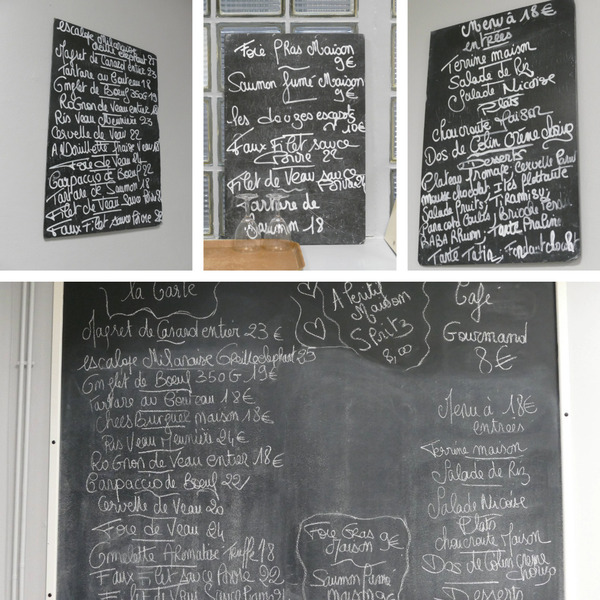 escalope Milanaise
Magret de Canard entier 23
Tartare au Couteau 18
Onglet de Boeuf 350G 19
Rognon de Veau entier 18
Ris Veau Meunière 23
Cervelle de Veau 22
Andouillette fraise Veau 18
Foie de Veau 24
Carpaccio de Boeuf 22
Tartare de Saumon 18
Filet de Veau sauce
Faux Filet sauce Poivre
Foie Gras Maison
9€
Saumon fumé Maison
9€
les
10€
Faux Filet sauce
Poivre 22
Filet de Veau sauce
Tartare de
Saumon 18
Menu à 18€
entrées
Terrine maison
Salade de Riz
Salade Nicoise
Plats
choucroute Maison
Dos de Colin Creme
Desserts
Plateau fromage, Cervelle
mousse chocolat, Iles flottante
Salade Fruits, Tiramisu
Pana cota
BABA Rhum, Tarte Pralin
Tarte Tatin, Fondant
la Carte
Magret de Canard entier 23 €
escalope Milanaise 25
Onglet de Boeuf 350G 19€
Tartare au Couteau 18€
Chees Burguer maison 18€
Ris Veau Meunière 24€
Rognon de Veau entier 18€
Carpaccio de Boeuf 22
Cervelle de Veau 20
Foie de Veau 24
Omelette Aromatisé Truffe 18
Faux Filet sauce Poivre 22
Filet de Veau Sauce
Aperitif
Maison
Spritz
8,00
Foie Gras
Maison 9€
Saumon Fumé
maison 9€
Café
Gourmand
8€
Menu à 18€
entrees
Terrine maison
Salade de Riz
Salade Nicoise
Plats
choucroute Maison
Dos de Colin Creme
Desserts